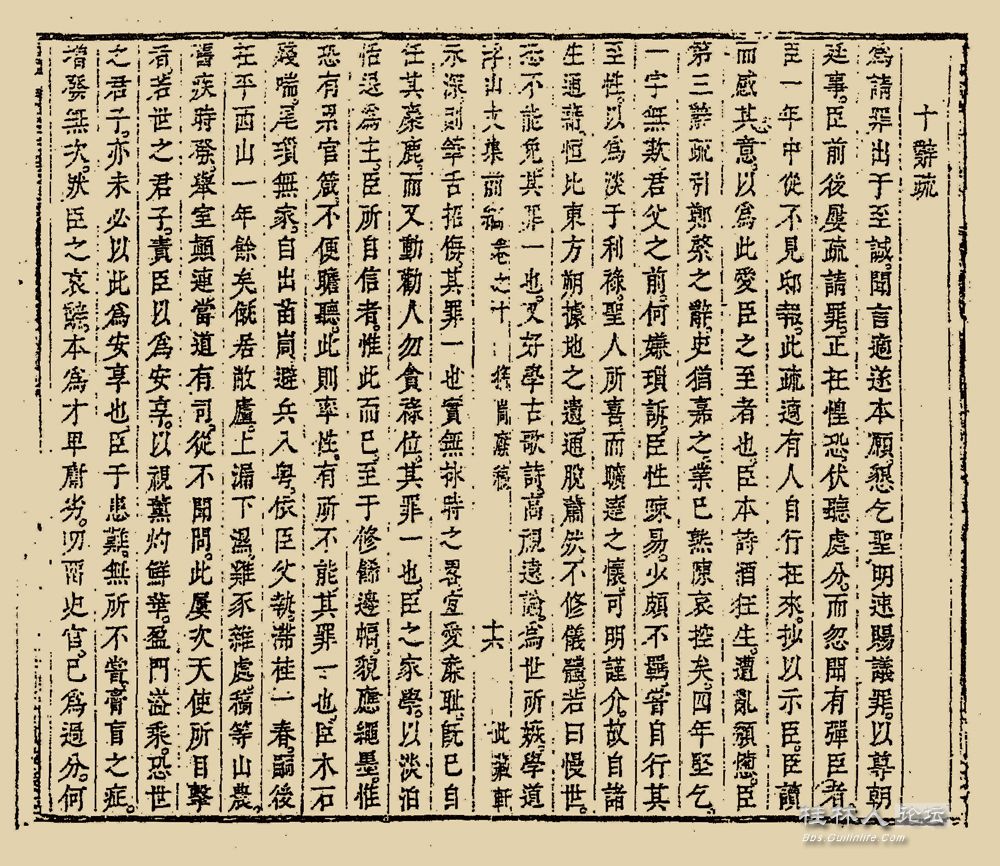 十辭疏
爲請罪出于至誠聞言適遂本願懇乞聖明速賜議罪以尊朝
廷事臣前後屢疏請罪正在惶恐伏聽處分而忽聞有彈臣者
臣一年中從不見邸報此疏適有人自行在來抄以示臣臣讀
而感其意以爲此愛臣之至者也臣本詩酒狂生遭亂頹憊臣
第三辭疏引鄭綮之辭史猶嘉之業已熟陳哀控矣四年堅乞
一字無欺君父之前何嫌瑣訴臣性疎易少頗不羈嘗自行其
至性以爲淡于利祿聖人所喜而曠達之懷可明謹介故自諸
生通籍恒比東方朔據地之遺通脫蕭然不修儀體若曰慢世
恐不能免其罪一也又好學古歌詩高視遠論爲世所嫉學道
浮山文集前編 卷之十 嶺 稿 十六 此藏軒
示深則筆舌招侮其罪一也實無救時之畧宜愛廉恥旣已自
任其麋鹿而又動勸人勿貪祿位其罪一也臣之家學以淡泊
恬退爲主臣所自信者惟此而已至于修餙邊幅貌應繩墨惟
恐有礙官箴不便瞻聽此則率性有所不能其罪一也臣木石
殘喘尾瑣無家自出苗峝避兵入粵依臣父執滯桂一春嗣後
在平西山一年餘矣僦居敝廬上漏下濕雞豕雜處稿等山農
舊疾時發舉室顛連當道有司從不聞問此屢次天使所目擊
者若世之君子責臣以爲安享以視薰灼鮮華盈門溢乘恐世
之君子亦未必以此爲安享也臣于患難無所不嘗膏肓之症
增發無次狀臣之哀辭本爲才卑庸劣叨竊史官已爲過分何
桂林人论坛
Bbs.Guilinlife.Com